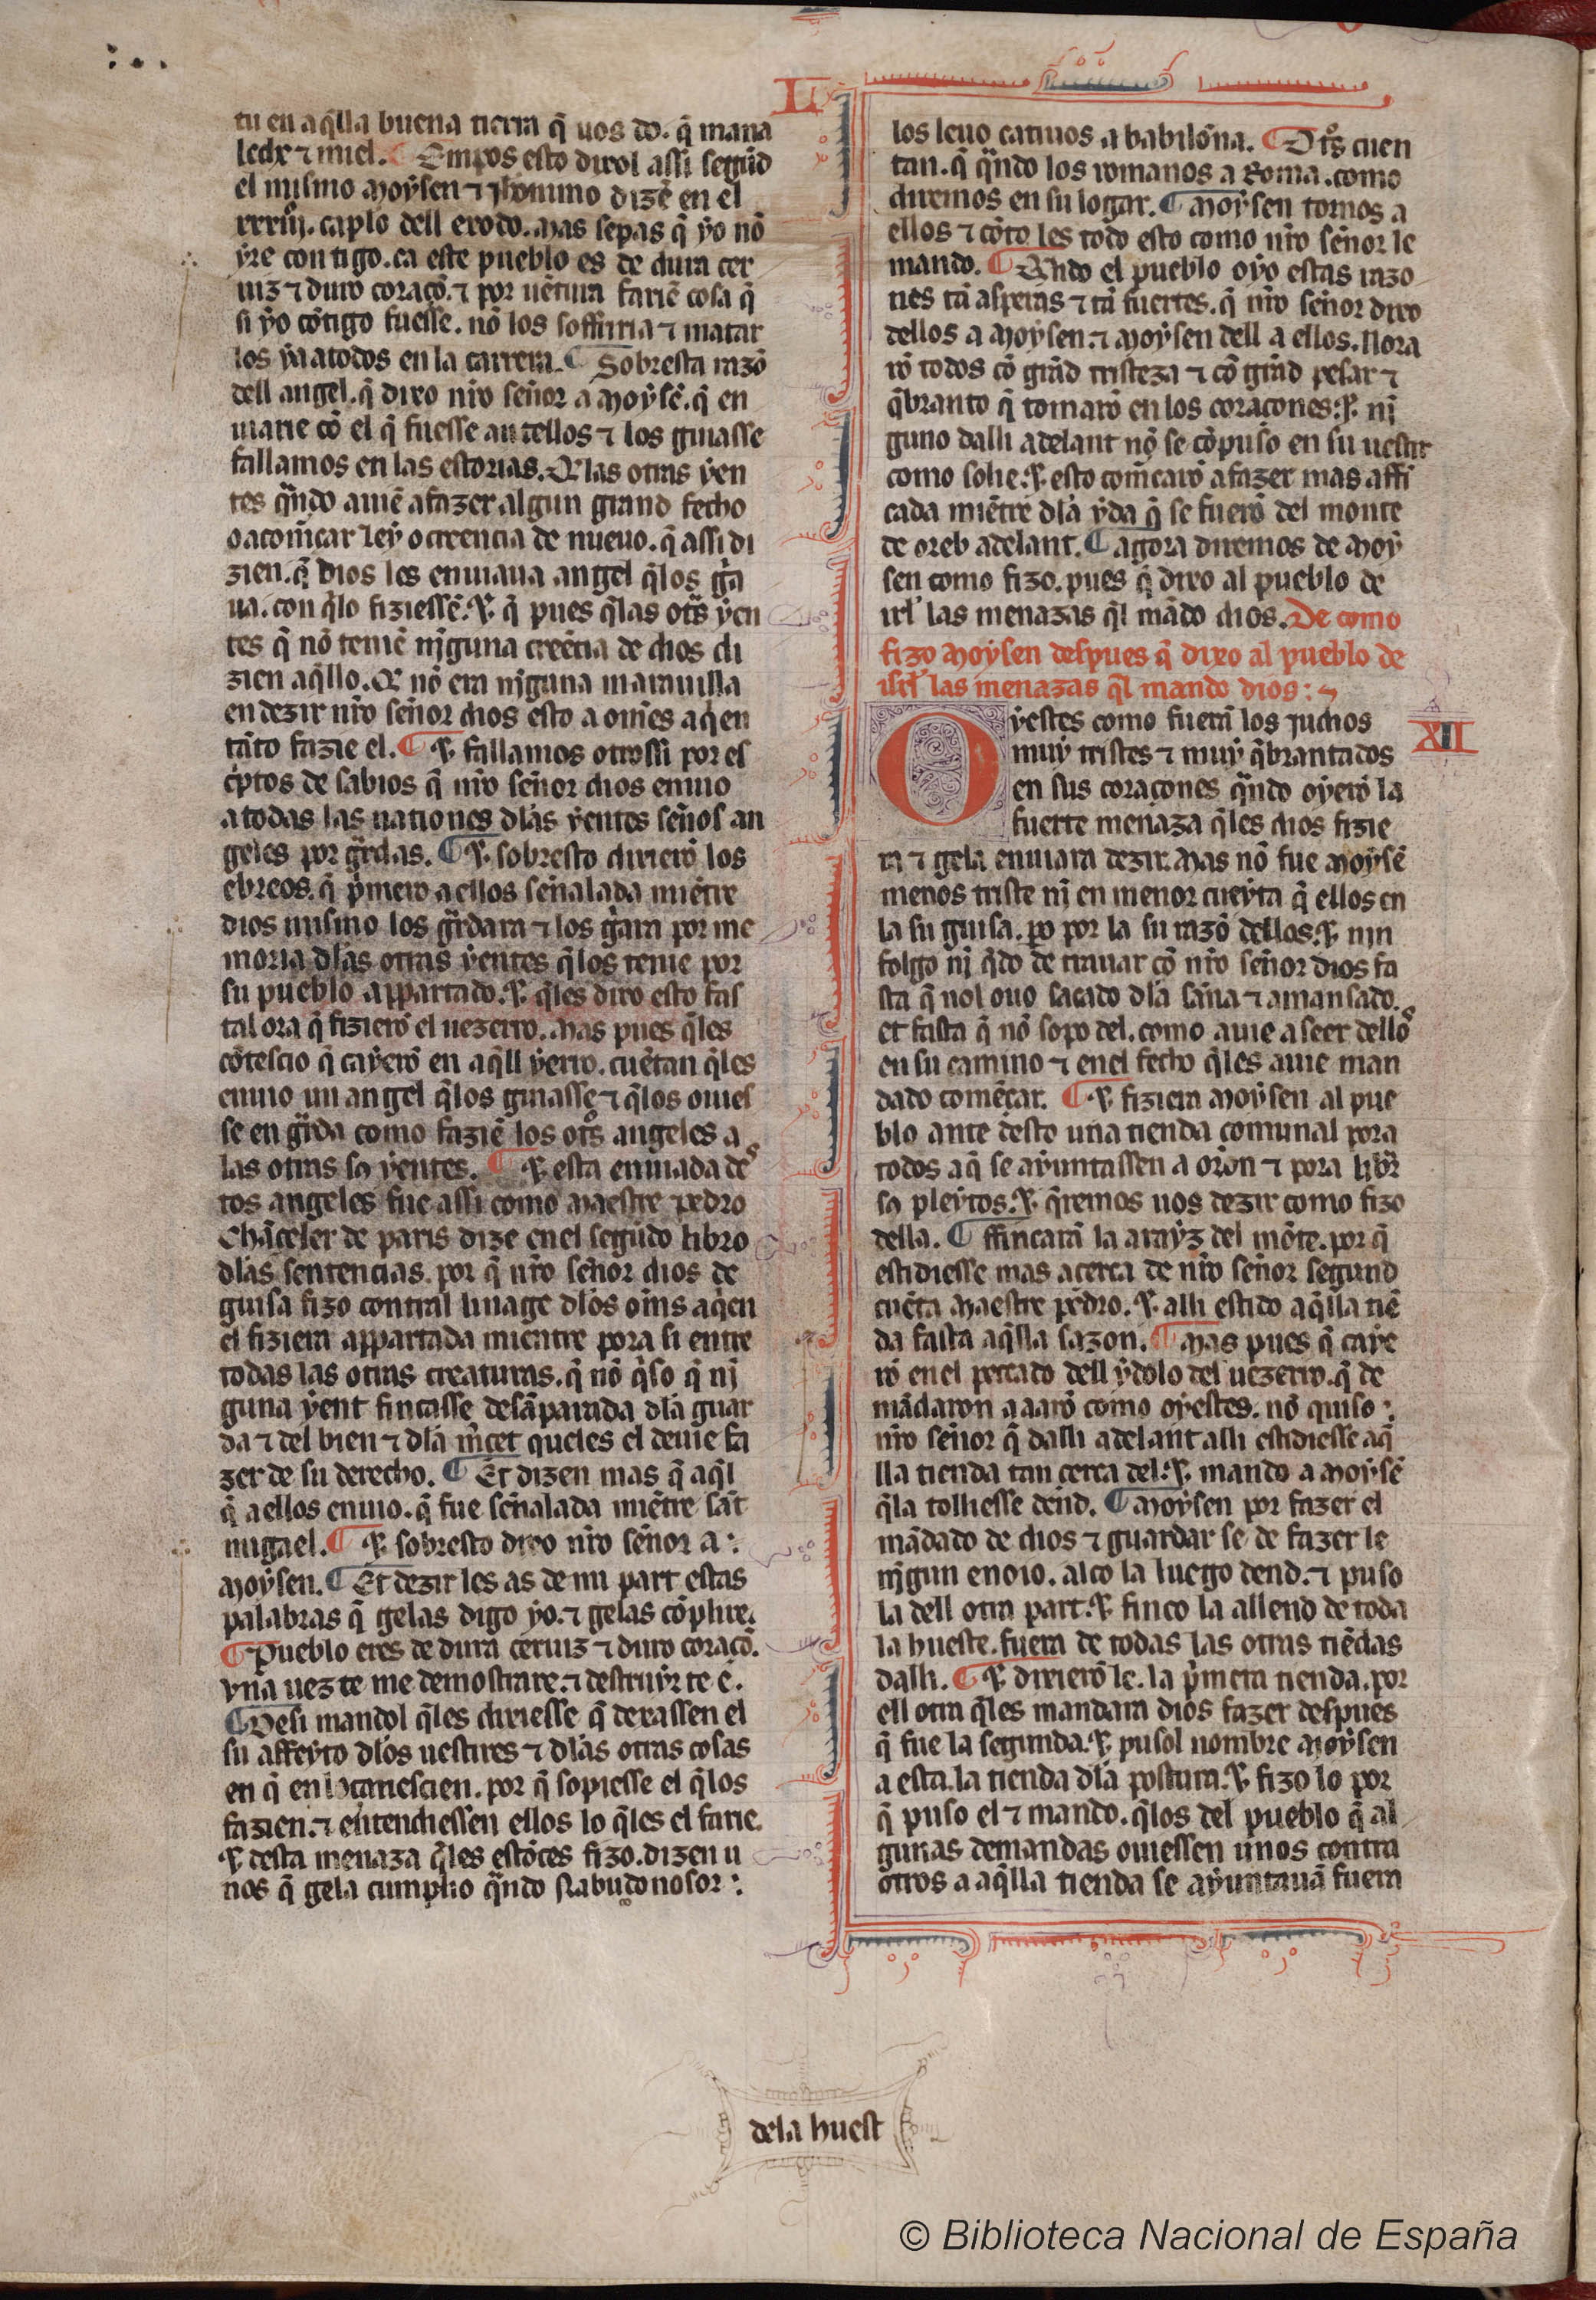 L
tu en aq̃lla buena tierra q̃ uos do. q̃ mana
lech ⁊ miel. ¶ Empos esto dixol assi segũd
el mismo moysen ⁊ jheronimo dizẽ en el
xxxiij. caplo dell exodo. Mas sepas q̃ yo nõ
yre contigo. ca este pueblo es de dura cer
uiz ⁊ duro coraçõ. ⁊ por uẽtura fariẽ cosa q̃
si yo cõtigo fuesse. nõ los soffriria ⁊ matar
los ya a todos en la carrera. ¶ Sobresta razõ
dell angel. q̃ dixo nr̃o señor a Moysẽ. q̃ en
uiarie cõ el q̃ fuesse antellos ⁊ los guiasse
fallamos en las estorias. Q̃ las otras yen
tes qũdo auiẽ a fazer algun grand fecho
o acom̃çar ley o creencia de nueuo. q̃ assi di
zien. q̃ dios les enuiaua angel q̃los g̃a
ua. con q̃lo fiziessẽ. ⁊ q̃ pues q̃ las otr̃s yen
tes q̃ nõ teniẽ nj̃guna creẽcia de dios di
zien aq̃llo. Q̃ nõ era nj̃guna marauilla
en dezir nr̃o señor dios esto a om̃es a q̃en
tãto fazie el. ¶ ⁊ fallamos otrossi por es
c̃ptos de sabios q̃ nr̃o señor dios enuio
a todas las nationes dlas yentes seños an
geles por gr̃das. ¶ ⁊ sobresto dixierõ los
ebreos. q̃ p̃mero a ellos señalada miẽtre
dios mismo los gr̃dara ⁊ los g̃ara por me
moria dlas otras yentes q̃los tenie por
su pueblo appartado. ⁊ q̃les diro esto fas
tal ora q̃ fizierõ el uezerro. Mas pues q̃les
cõtescio q̃ cayerõ en aq̃ll yerro. cuẽtan q̃les
enuio un angel q̃los guiasse ⁊ q̃los ouies
se en gr̃da como faziẽ los otr̃s angeles a
las otras sꝯ yentes. ¶ ⁊ esta enuiada des
tos angeles fue assi como maestre pedro
Chãceler de paris dize en el segũdo libro
dlas sentencias. por q̃ nr̃o señor dios de
guisa fizo contral linage dlos om̃s a q̃en
el fiziera appartada mientre pora si entre
todas las otras creaturas. q̃ nõ q̃so q̃ nj̃
guna yent fincasse desãparada dla guar
da ⁊ del bien ⁊ dla m̃cet queles el deuie fa
zer de su derecho. ¶ Et dizen mas q̃ aq̃l
q̃ a ellos enuio. q̃ fue señalada miẽtre sãt
migael. ¶ ⁊ sobresto dixo nr̃o señor a :.
Moysen. ¶ Et dezir les as de mi part estas
palabras q̃ gelas digo yo. ⁊ gelas cõplire.
¶ Pueblo eres de dura ceruiz ⁊ duro coraçõ.
vna uez te me demostrare. ⁊ destruyr te e.
¶ Desi mandol q̃les dixiesse q̃ dexassen el
su affeyto dlos uestires ⁊ dlas otras cosas
en q̃ enloçanescien. por q̃ sopiesse el q̃ los
fazien. ⁊ entendiessen ellos lo q̃les el farie.
⁊ desta menaza q̃les estõces fizo. dizen u
nos q̃ gela cumplio qũdo Nabudonosor :.
los leuo catiuos a babilõna. ¶ Otr̃s cuen
tan. q̃ qũdo los romanos a Roma. como
diremos en su logar. ¶ Moysen tornos a
ellos ⁊ cõto les todo esto como nr̃o señor le
mando. ¶ Qũdo el pueblo oyo estas razo
nes tã asperas ⁊ tã fuertes. q̃ nr̃o señor dixo
dellos a Moysen. ⁊ Moysen dell a ellos. llora
rõ todos cõ grãd tristeza ⁊ cõ grãd pesar ⁊
q̃branto q̃ tomarõ en los coraçones. ⁊ nj̃
guno dalli adelant nõ se cõpuso en su uestir
como solie. ⁊ esto com̃çarõ a fazer mas affi
cada miẽtre dla yda q̃ se fuerõ del monte
de oreb adelant. ¶ agora diremos de Moy
sen como fizo. pues q̃ dixo al pueblo de
isrl̃ las menazas q̃l mãdo dios. De como
fizo Moysen despues q̃ dixo al pueblo de
isrl̃ las menazas q̃l mando dios :
XII
Oyestes como fuerã los judios
muy tristes ⁊ muy q̃brantados
en sus coraçones qũdo oyerõ la
fuerte menaza q̃les dios fizie
ra ⁊ gela enuiara dezir. Mas nõ fue Moysẽ
menos triste nj̃ en menor cueyta q̃ ellos en
la su guisa. po por la su razõ dellos. ⁊ nin
folgo nj̃ q̃do de trauar cõ nr̃o señor dios fa
sta q̃ nol ouo sacado dla sãna ⁊ amansado.
et fasta q̃ nõ sopo del. como auie a seer dellos
en su camino ⁊ en el fecho q̃les auie man
dado comẽçar. ¶ ⁊ fiziera Moysen al pue
blo ante desto una tienda comunal pora
todos a q̃ se ayuntassen a oron ⁊ pora libr̃
sꝯ pleytos. ⁊ q̃remos uos dezir como fizo
della. ¶ ffincarã la a rayz del mõte. por q̃
estidiesse mas acerca de nr̃o señor segund
cuẽta maestre pedro. ⁊ alli estido aq̃lla tiẽ
da fasta aq̃lla sazon. ¶ Mas pues q̃ caye
rõ en el peccado dell ydolo del uezerro. q̃ de
mãdaron a aarõ como oyestes. nõ quiso :.
nr̃o señor q̃ dalli adelant alli estidiesse aq̃
lla tienda tan cerca del. ⁊ mando a Moysẽ
q̃la tolliesse dend. ¶ Moysen por fazer el
mãdado de dios ⁊ guardar se de fazer le
nj̃gun enoio. alço la luego dend. ⁊ puso
la dell otra part. ⁊ finco la allend de toda
la hueste. fuera de todas las otras tiẽdas
dalli. ¶ ⁊ dixierõ le. la p̃mera tienda. por
ell otra q̃les mandara dios fazer despues
q̃ fue la segunda. ⁊ pusol nombre Moysen
a esta. la tienda dla postura. ⁊ fizo lo por
q̃ puso el ⁊ mando. q̃los del pueblo q̃ al
gunas demandas ouiessen unos contra
otros a aq̃lla tienda se ayuntauã fuera
dela huest
© Biblioteca Nacional de España